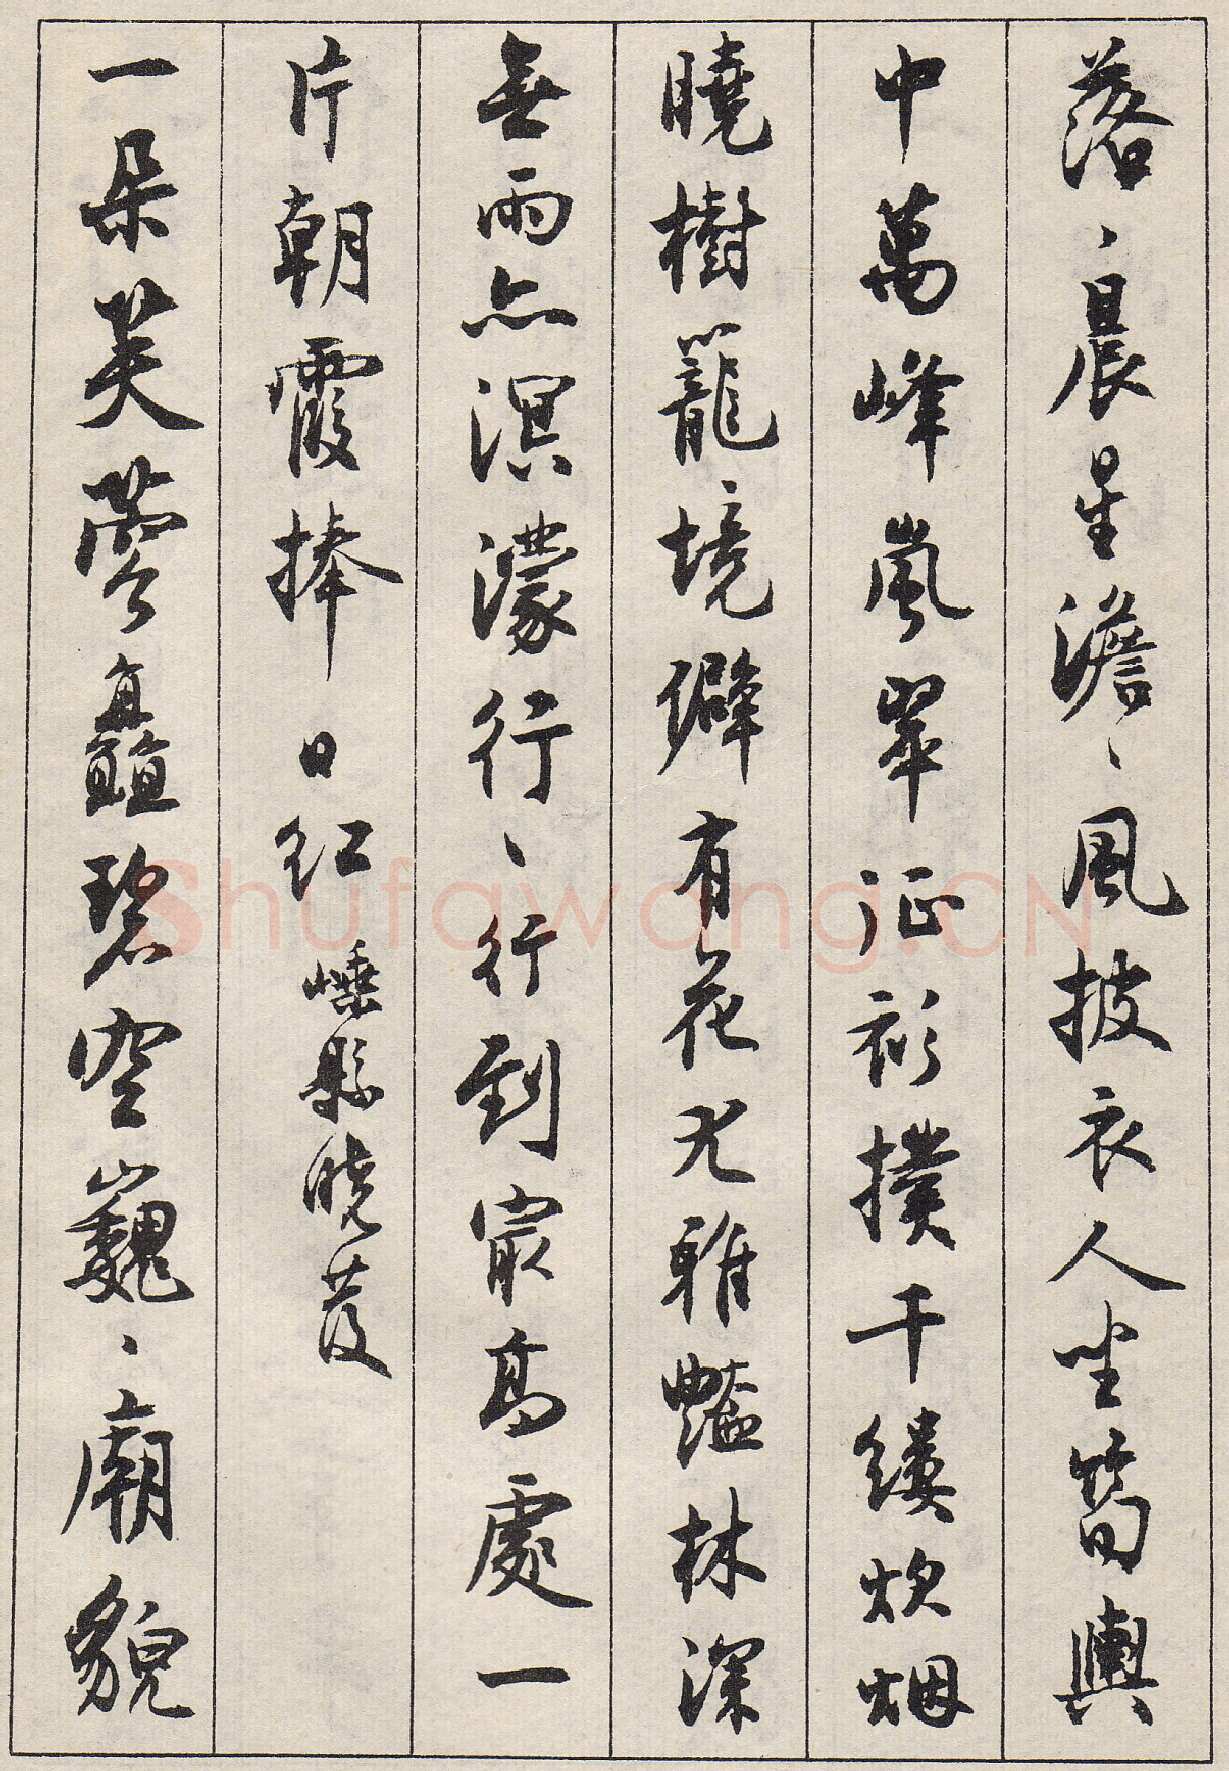 落、晨星澹、風披衣人坐筍輿
中萬峰嵐翠征衫撲千縷炊烟
曉樹籠境僻有花尤雅豔林深
無雨亦溟濛行、行到最高處一
片朝霞捧日紅 嵊縣曉發
一朵芙蓉矗碧空巍、廟貌
Shufawang.CN